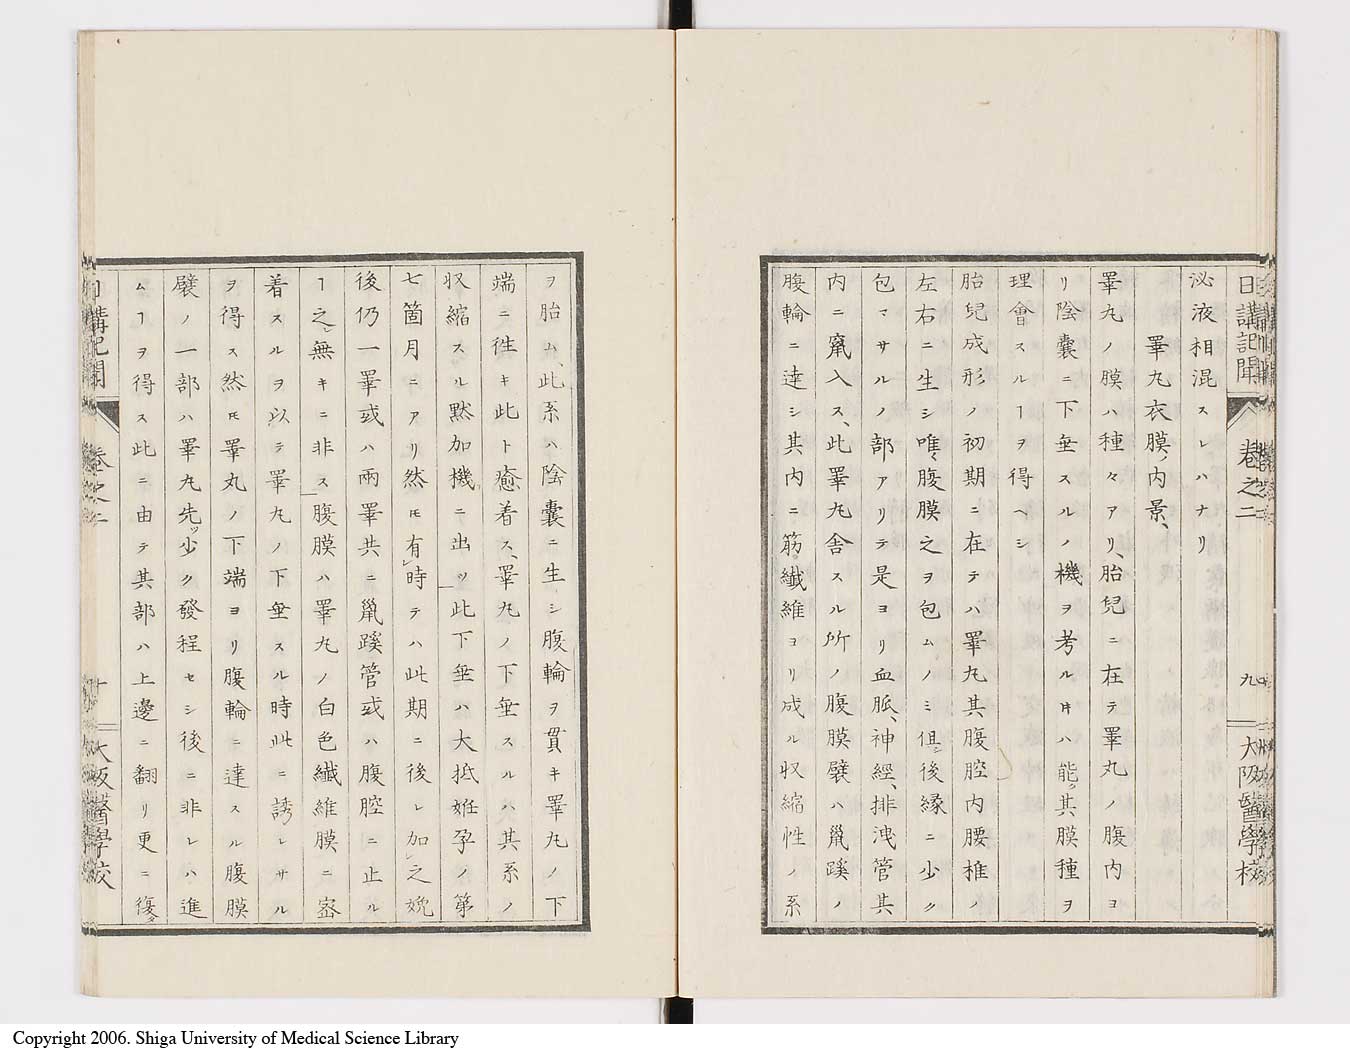 日講記聞 卷之二 九 大阪醫學校
泌液相混スレハナリ
睪丸衣膜ノ内景、
睪丸ノ膜ハ種々アリ、胎兒ニ在テ睪丸ノ腹内ヨ
リ陰嚢ニ下垂スルノ機ヲ考ルㇳキハ能ク其膜種ヲ
理會スルヿヲ得ヘシ
胎兒成形ノ初期ニ在テハ睪丸其腹腔内腰椎ノ
左右ニ生シ唯腹膜之ヲ包ムノミ但シ後縁ニ少ク
包マサルノ部アリテ是ヨリ血脈、神經、排洩管其
内ニ竄入ス、此睪丸舍スル所ノ腹膜襞ハ鼠蹊ノ
腹輪ニ達シ其内ニ筋纎維ヨリ成ル収縮性ノ系
ヲ胎ム、此系ハ陰嚢ニ生シ腹輪ヲ貫キ睪丸ノ下
端ニ徃キ此ト癒着ス、睪丸ノ下垂スルハ其系ノ
収縮スル黙加機ニ出ツ此下垂ハ大抵姙孕ノ第
七箇月ニアリ然𪜈有時テハ此期ニ後レ加之娩
後仍一睪或ハ兩睪共ニ鼠蹊管或ハ腹腔ニ止ル
ヿ之無キニ非ス腹膜ハ睪丸ノ白色纎維膜ニ密
着スルヲ以テ睪丸ノ下垂スル時此ニ誘レサル
ヲ得ス然𪜈睪丸ノ下端ヨリ腹輪ニ達スル腹膜
襞ノ一部ハ睪丸先ツ少ク發程セシ後ニ非レハ進
ムヿヲ得ス此ニ由テ其部ハ上邊ニ翻リ更ニ復タ
日講記聞 卷之二 十 大阪醫學校